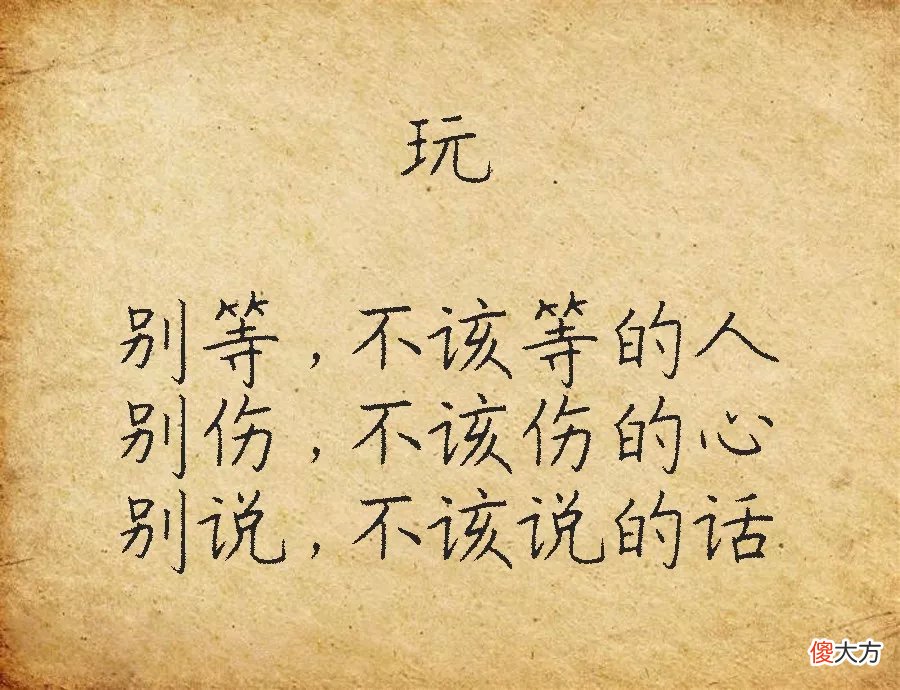 玩
别等,不该等的人
别伤,不该伤的心
别说,不该说的话
傻大方